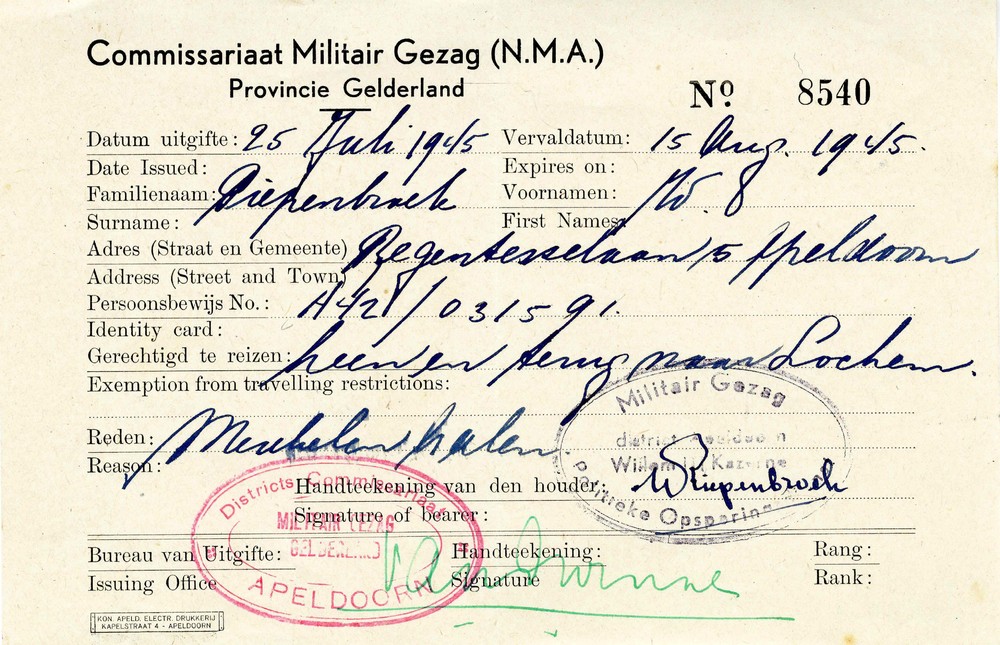 Commissariaat Militair Gezag (N.M.A.)
Provincie Gelderland
No. 8540
Datum uitgifte: 25 Juli 1945 Vervaldatum: 15 Aug. 1945.
Date Issued: Expires on:
Familienaam: Diepenbroek Voornamen:
Surname: First Names:
Adres (Straat en Gemeente) Regentesselaan 5 Apeldoorn
Address (Street and Town)
Persoonsbewijs No.: A42 / 031591.
Identity card:
Gerechtigd te reizen: heen en terug naar Lochem.
Exemption from travelling restrictions:
Militair Gezag
Reden: Meubelen halen
district Apeldoorn
Reason:
Willem III Kazerne
Politieke Opsporing
Districts Commissariaat
Handteekening van den houder: WDiepenbroek
MILITAIR GEZAG
Signature of bearer:
GELDERLAND
Bureau van Uitgifte: Handteekening: Rang:
Issuing Office Signature Rank:
APELDOORN
KON. APELD. ELECTR. DRUKKERIJ
KAPELSTRAAT 4 - APELDOORN